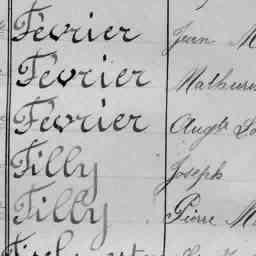 Février Jean M
Février Mathurin
Février Augte
Filly Joseph
Filly Pierre M